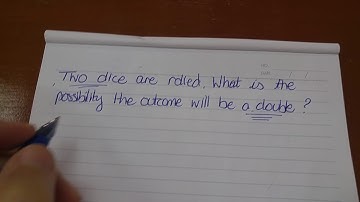 Two dice are rolled. What is the
possibility the outcome will be a double?